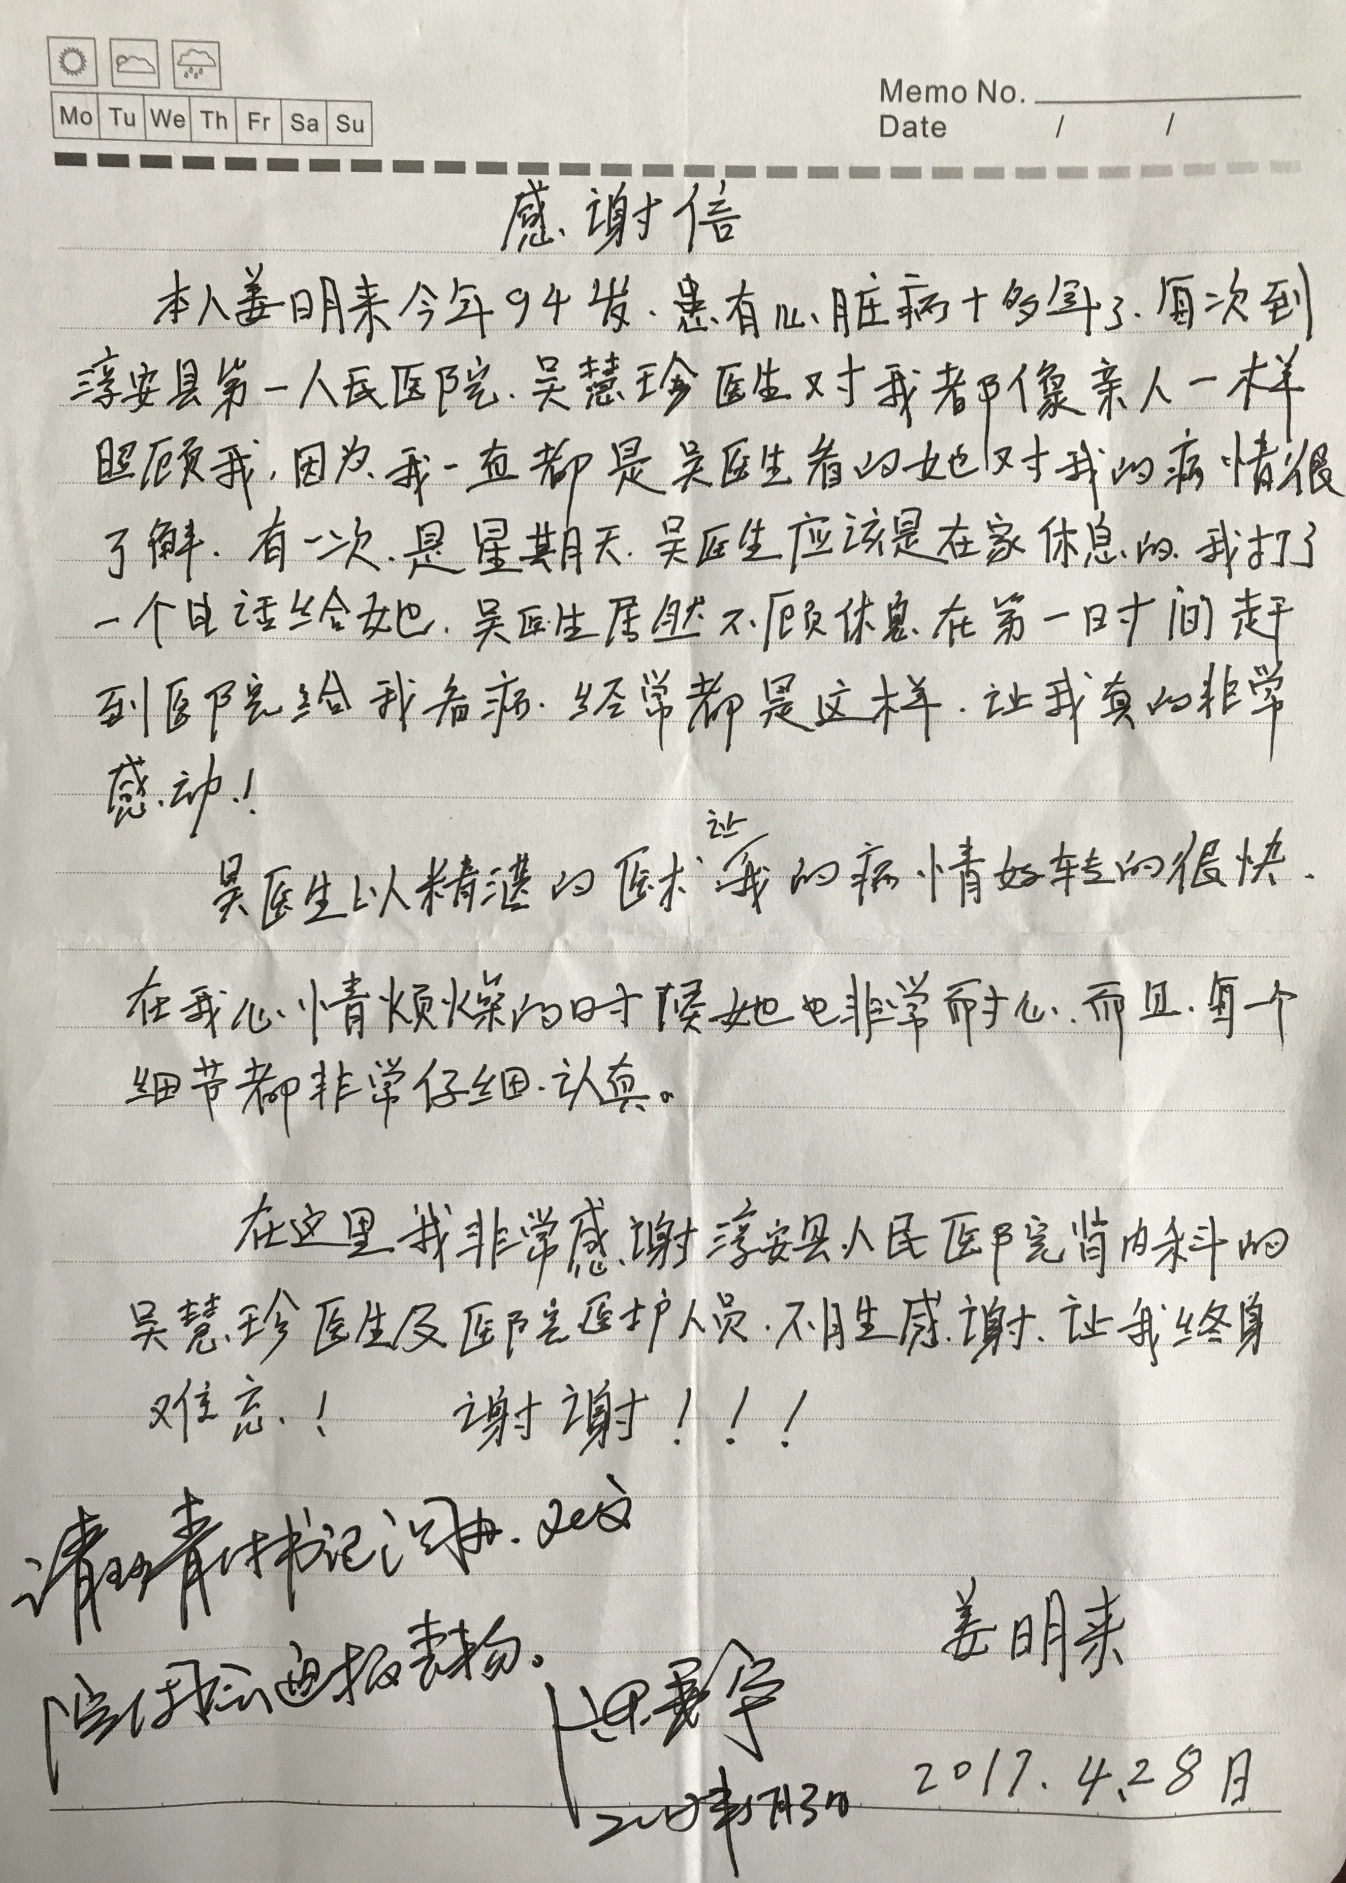 Mo Tu We Th Fr Sa Su
Memo No.
Date / /
感谢信
本人姜明来今年94岁.患有心脏病十多年了.每次到
淳安县第一人民医院.吴慧珍医生对我都像亲人一样
照顾我,因为我一直都是吴医生看的她对我的病情很
了解.有一次.是星期天.吴医生应该是在家休息的.我打了
一个电话给她.吴医生居然不顾休息在第一时间赶
到医院给我看病.经常都是这样.让我真的非常
感动!
吴医生以精湛的医术让我的病情好转的很快.
在我心情烦燥的时候她也非常耐心.而且.每个
细节都非常仔细.认真。
在这里我非常感谢淳安县人民医院肾内科的
吴慧珍医生及医院医护人员.不胜感谢.让我终身
难忘!谢谢!!!
书记
通报表扬。
姜明来
2017.4.28日